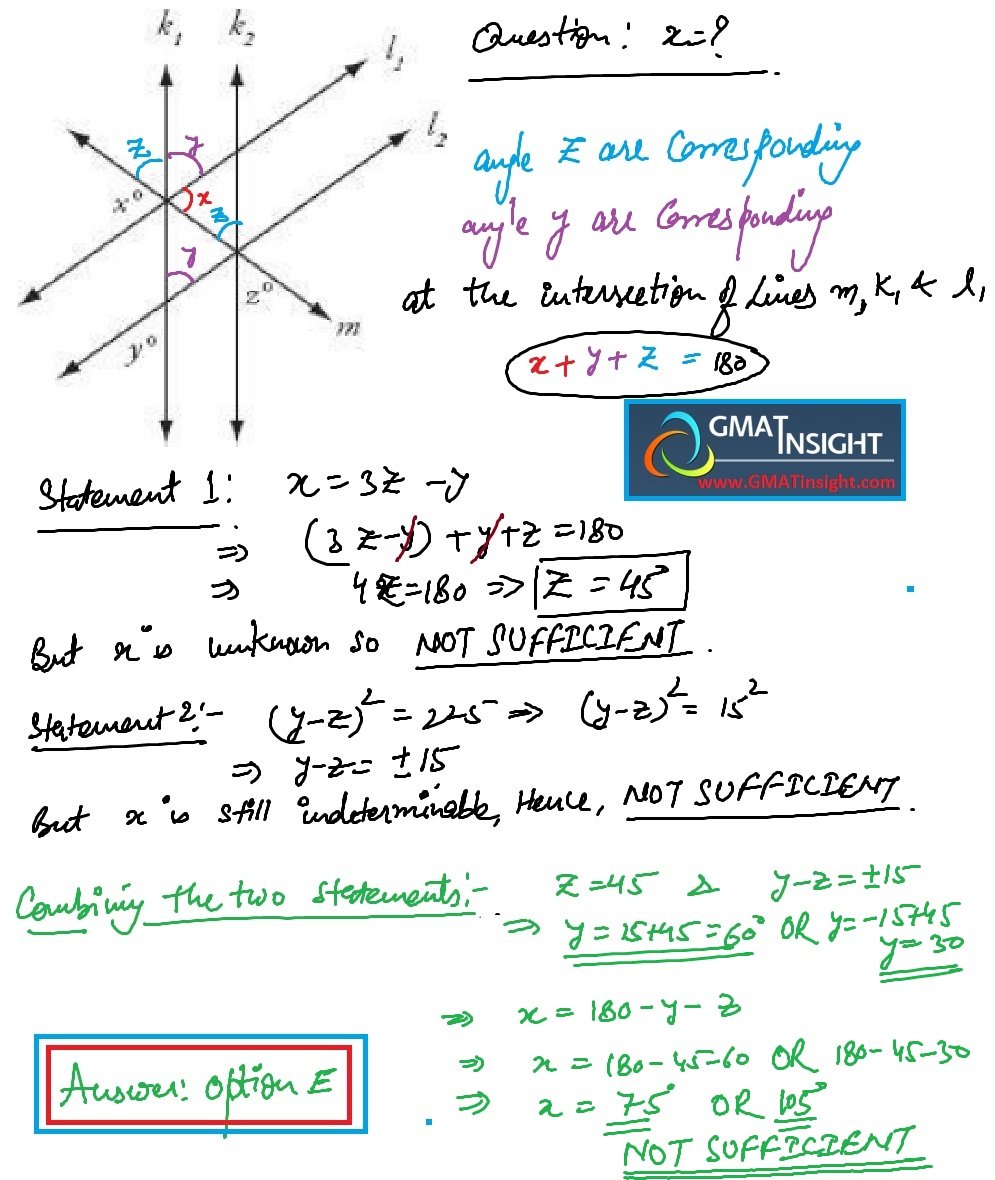 k₁ k₂
l₁
l₂
z y
x° x
z
y
z°
m
y°
Question: x=?
angle z are Corresponding
angle y are Corresponding
at the intersection of Lines m, K₁ & l₁
x + y + z = 180
GMAT INSIGHT
www.GMATinsight.com
Statement 1: x = 3z - y
⇒ (3z-y) + y + z = 180
⇒ 4z=180 ⇒ z = 45°
But x is unknown so NOT SUFFICIENT.
Statement 2:- (y-z)² = 225 ⇒ (y-z)² = 15²
⇒ y-z = ±15
But x is still indeterminable, Hence, NOT SUFFICIENT.
Combining the two statements:- z=45 & y-z=±15
⇒ y=15+45=60° OR y=-15+45
y=30
⇒ x = 180-y-z
⇒ x = 180-45-60 OR 180-45-30
⇒ x = 75° OR 105°
NOT SUFFICIENT
Answer: option E